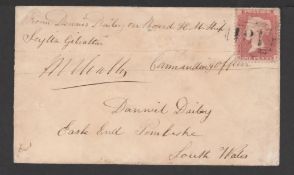 From Dennis Dailey on Board H.M. Ship
Scylla Gibraltar
Commanding Officer
Danniel Dailey
East End Pembroke
South Wales